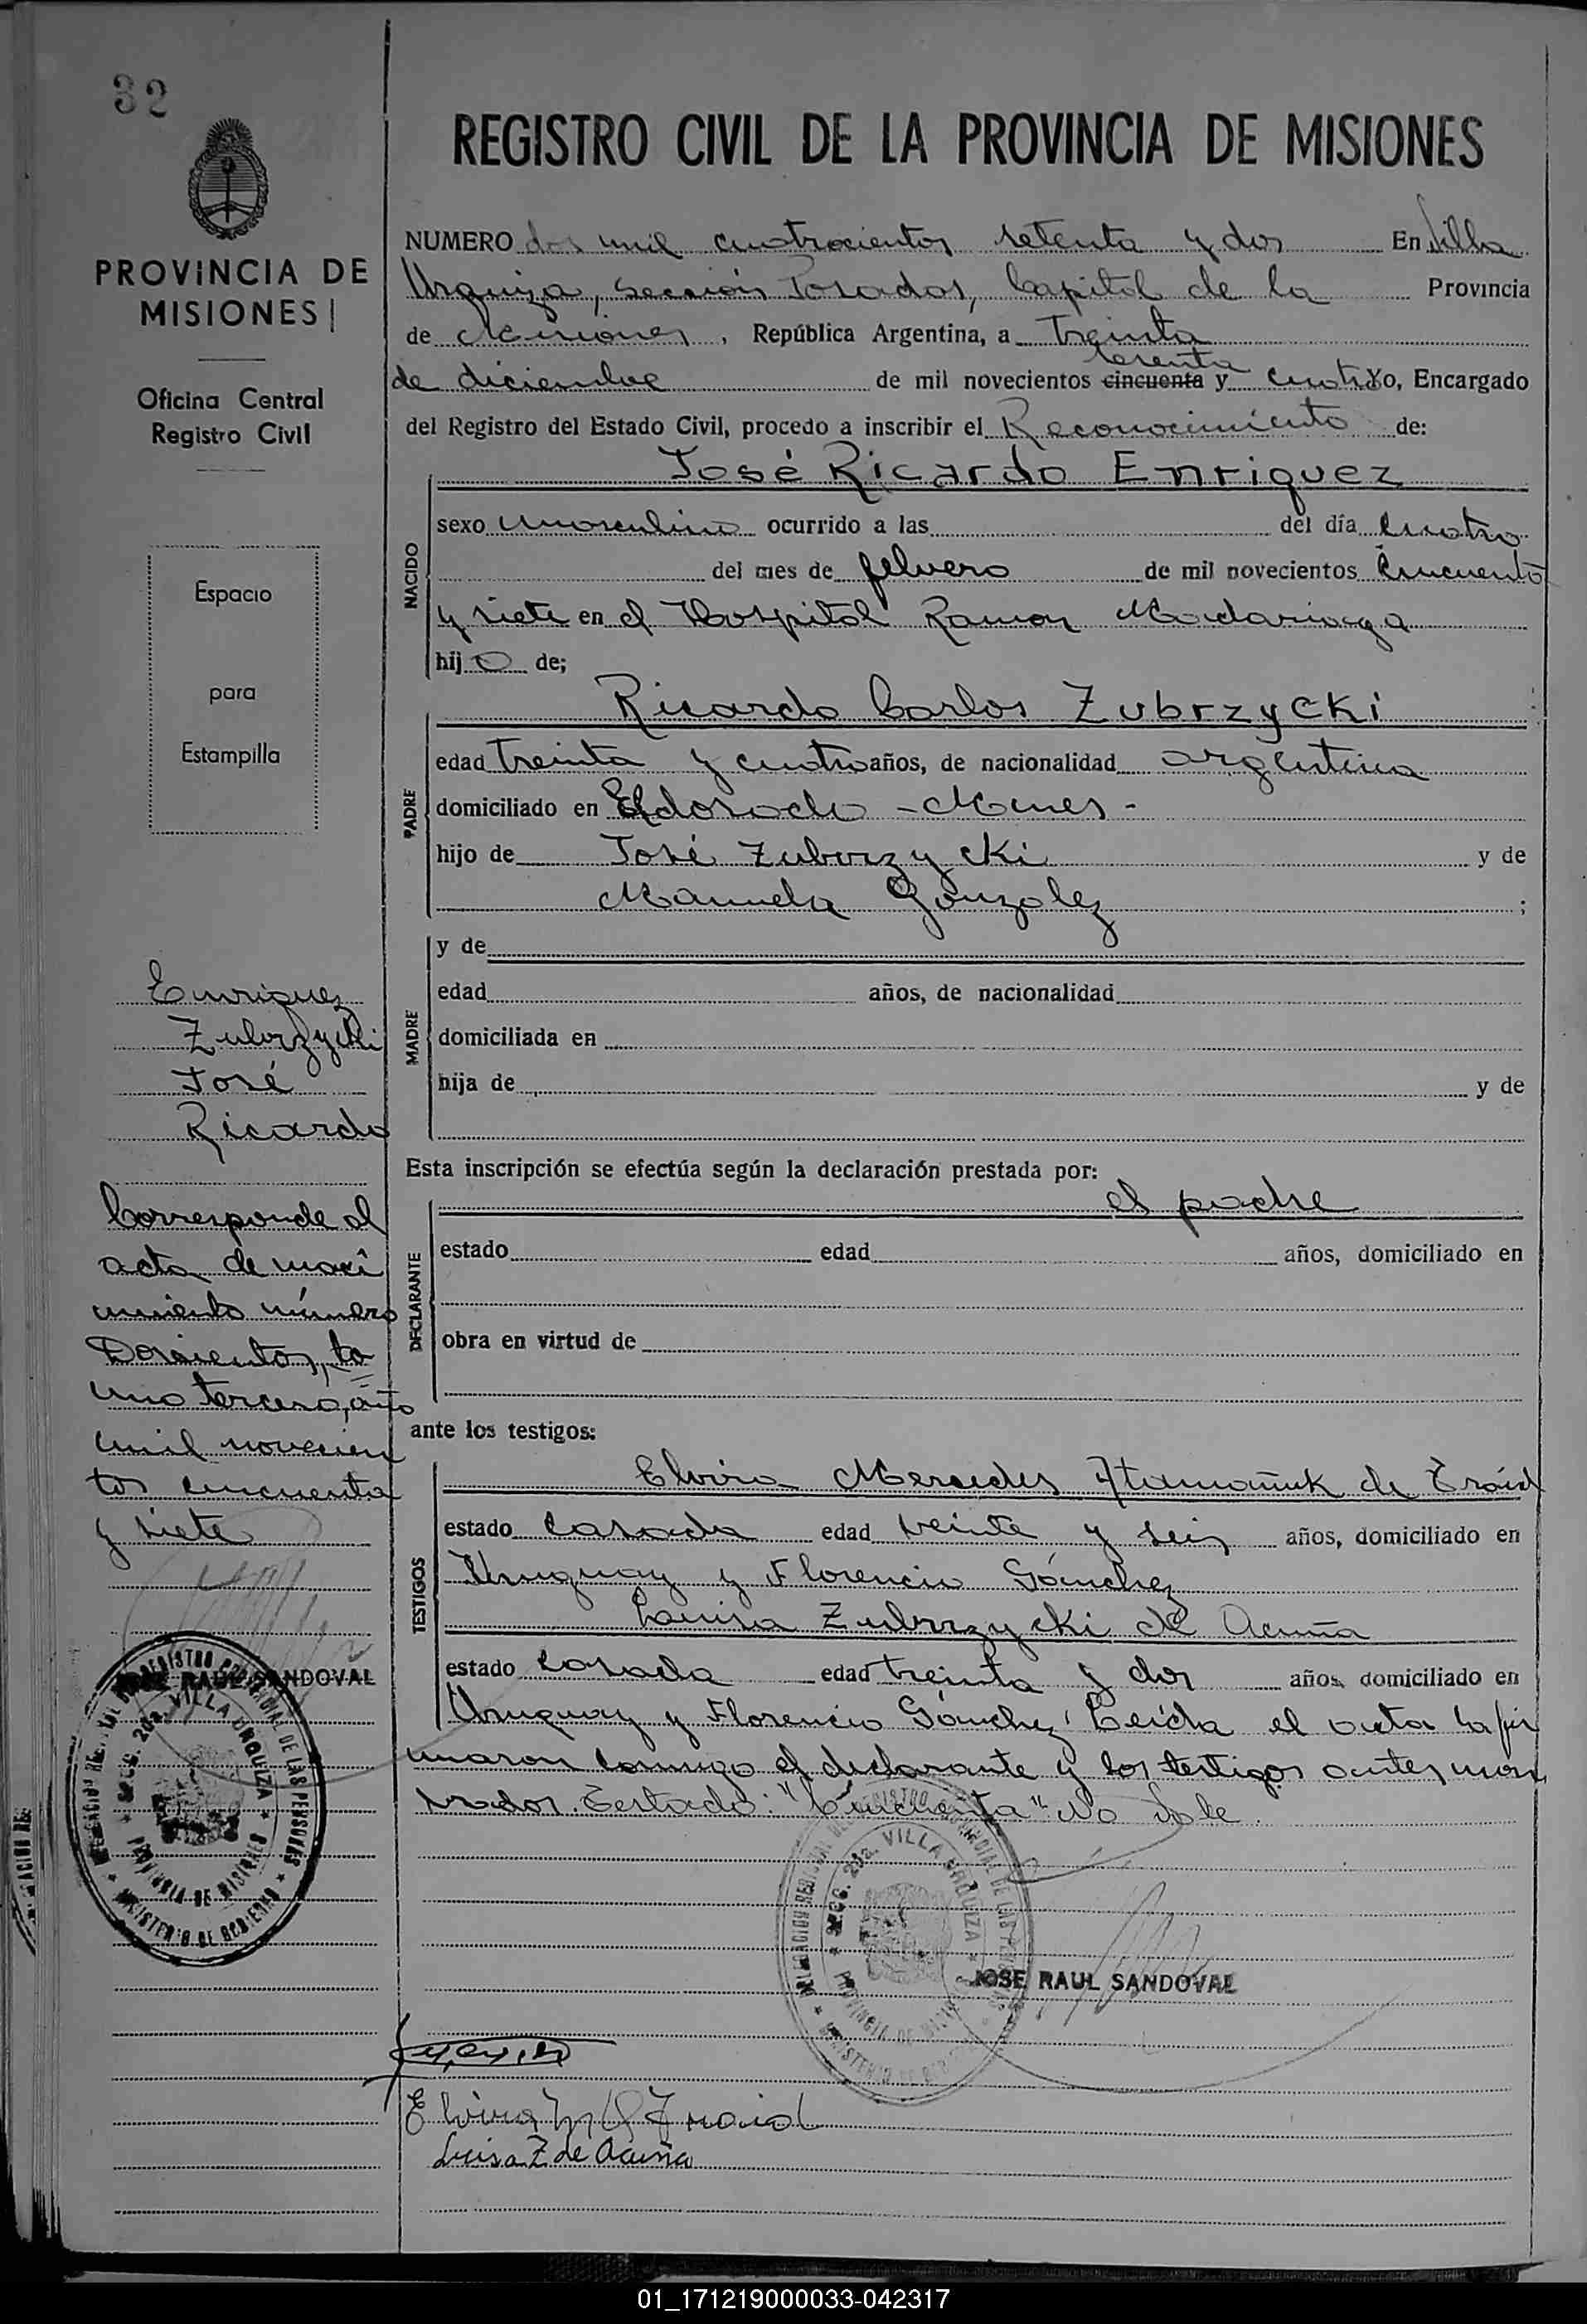 32
REGISTRO CIVIL DE LA PROVINCIA DE MISIONES
PROVINCIA DE
MISIONES
Oficina Central
Registro Civil
Espacio
para
Estampilla
Enriquez
Zubrzycki
José
Ricardo
Corresponde al
acta de naci
miento número
Doscientos, to
mo tercero, año
mil novecien
tos cincuenta
y siete
JOSE RAUL SANDOVAL
DELEGACION REGISTRO PROVINCIAL DE LAS PERSONAS
SECC. 2da. VILLA URQUIZA
PROVINCIA DE MISIONES
MINISTERIO DE GOBIERNO
NUMERO dos mil cuatrocientos setenta y dos En Villa
Urquiza, sección Posadas, Capital de la Provincia
de Misiones, República Argentina, a treinta
sesenta
de diciembre de mil novecientos cincuenta y cuatro Yo, Encargado
del Registro del Estado Civil, procedo a inscribir el Reconocimiento de:
José Ricardo Enriquez
NACIDO
sexo masculino ocurrido a las del día cuatro
del mes de febrero de mil novecientos cincuenta
y siete en el Hospital Ramon Madariaga
hijo de;
PADRE
Ricardo Carlos Zubrzycki
edad treinta y cuatro años, de nacionalidad argentina
domiciliado en Eldorado - Mnes -
hijo de José Zubrzycki y de
Manuela Gonzalez ;
MADRE
y de
edad años, de nacionalidad
domiciliada en
hija de y de
Esta inscripción se efectúa según la declaración prestada por:
el padre
DECLARANTE
estado edad años, domiciliado en
obra en virtud de
ante los testigos:
TESTIGOS
Elvira Mercedes de
estado casada edad veinte y seis años, domiciliado en
Uruguay y Florencio Sánchez
Luisa Zubrzycki de Acuña
estado casada edad treinta y dos años, domiciliado en
Uruguay y Florencio Sánchez Leída el acta la fir
maron conmigo el declarante y los testigos antes nom
brados. Testado: "Cincuenta" No Vale.
DELEGACION REGISTRO PROVINCIAL DE LAS PERSONAS
SECC. 2da. VILLA URQUIZA
PROVINCIA DE MISIONES
MINISTERIO DE GOBIERNO
JOSE RAUL SANDOVAL
Elvira
Luisa Z de Acuña
01_171219000033-042317